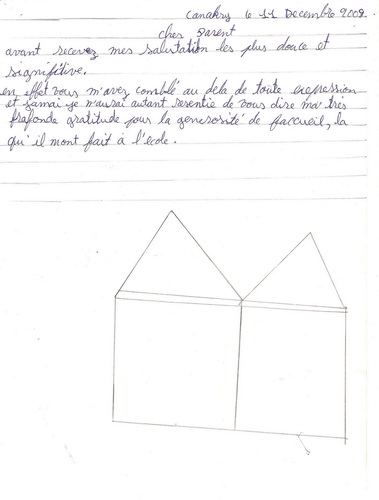 Canakry le 11 Decembre 2009.
cher parent
avant recevez mes salutation les plus douce et
signifitive.
en effet vous m'avez comblé au dela de toute expression
et jamai je n'aurai autant resentie de vous dire ma tres
profonde gratitude pour la generosité de l'accueil, la
qu'il mont fait à l'école.